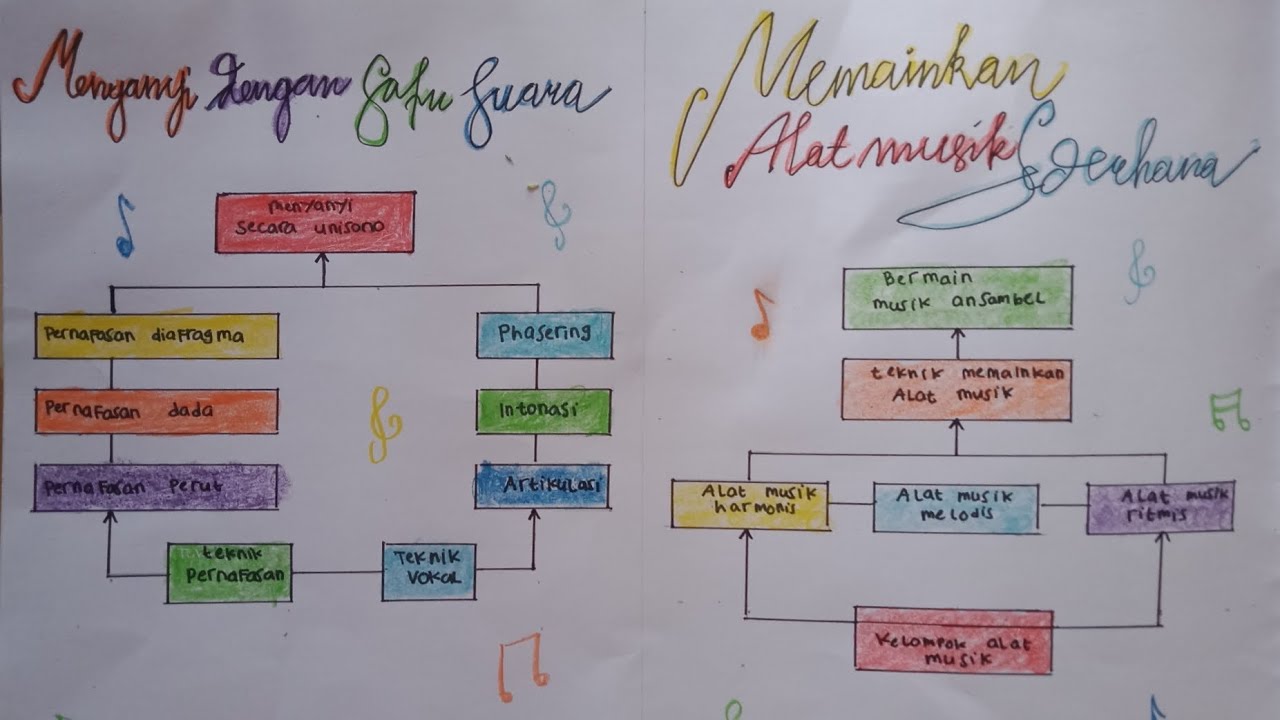 Menyanyi dengan Satu Suara
menyanyi
secara unisono
Pernafasan diafragma
Phasering
Pernafasan dada
Intonasi
Pernafasan Perut
Artikulasi
teknik
Pernafasan
Teknik
vokal
Memainkan
Alat musik Sederhana
Bermain
musik ansambel
teknik memainkan
Alat musik
Alat musik
harmonis
Alat musik
melodis
Alat musik
ritmis
Kelompok alat
musik